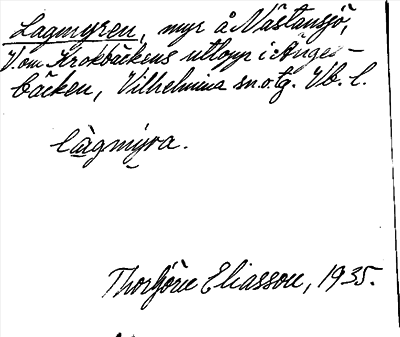 Lagmyren, myr å Nästansjö,
V. om Krokbäckens utlopp i Ånges-
bäcken, Vilhelmina sn. o. tg. Vb. l.
làgmyra.
Thorbjörn Eliasson, 1935.